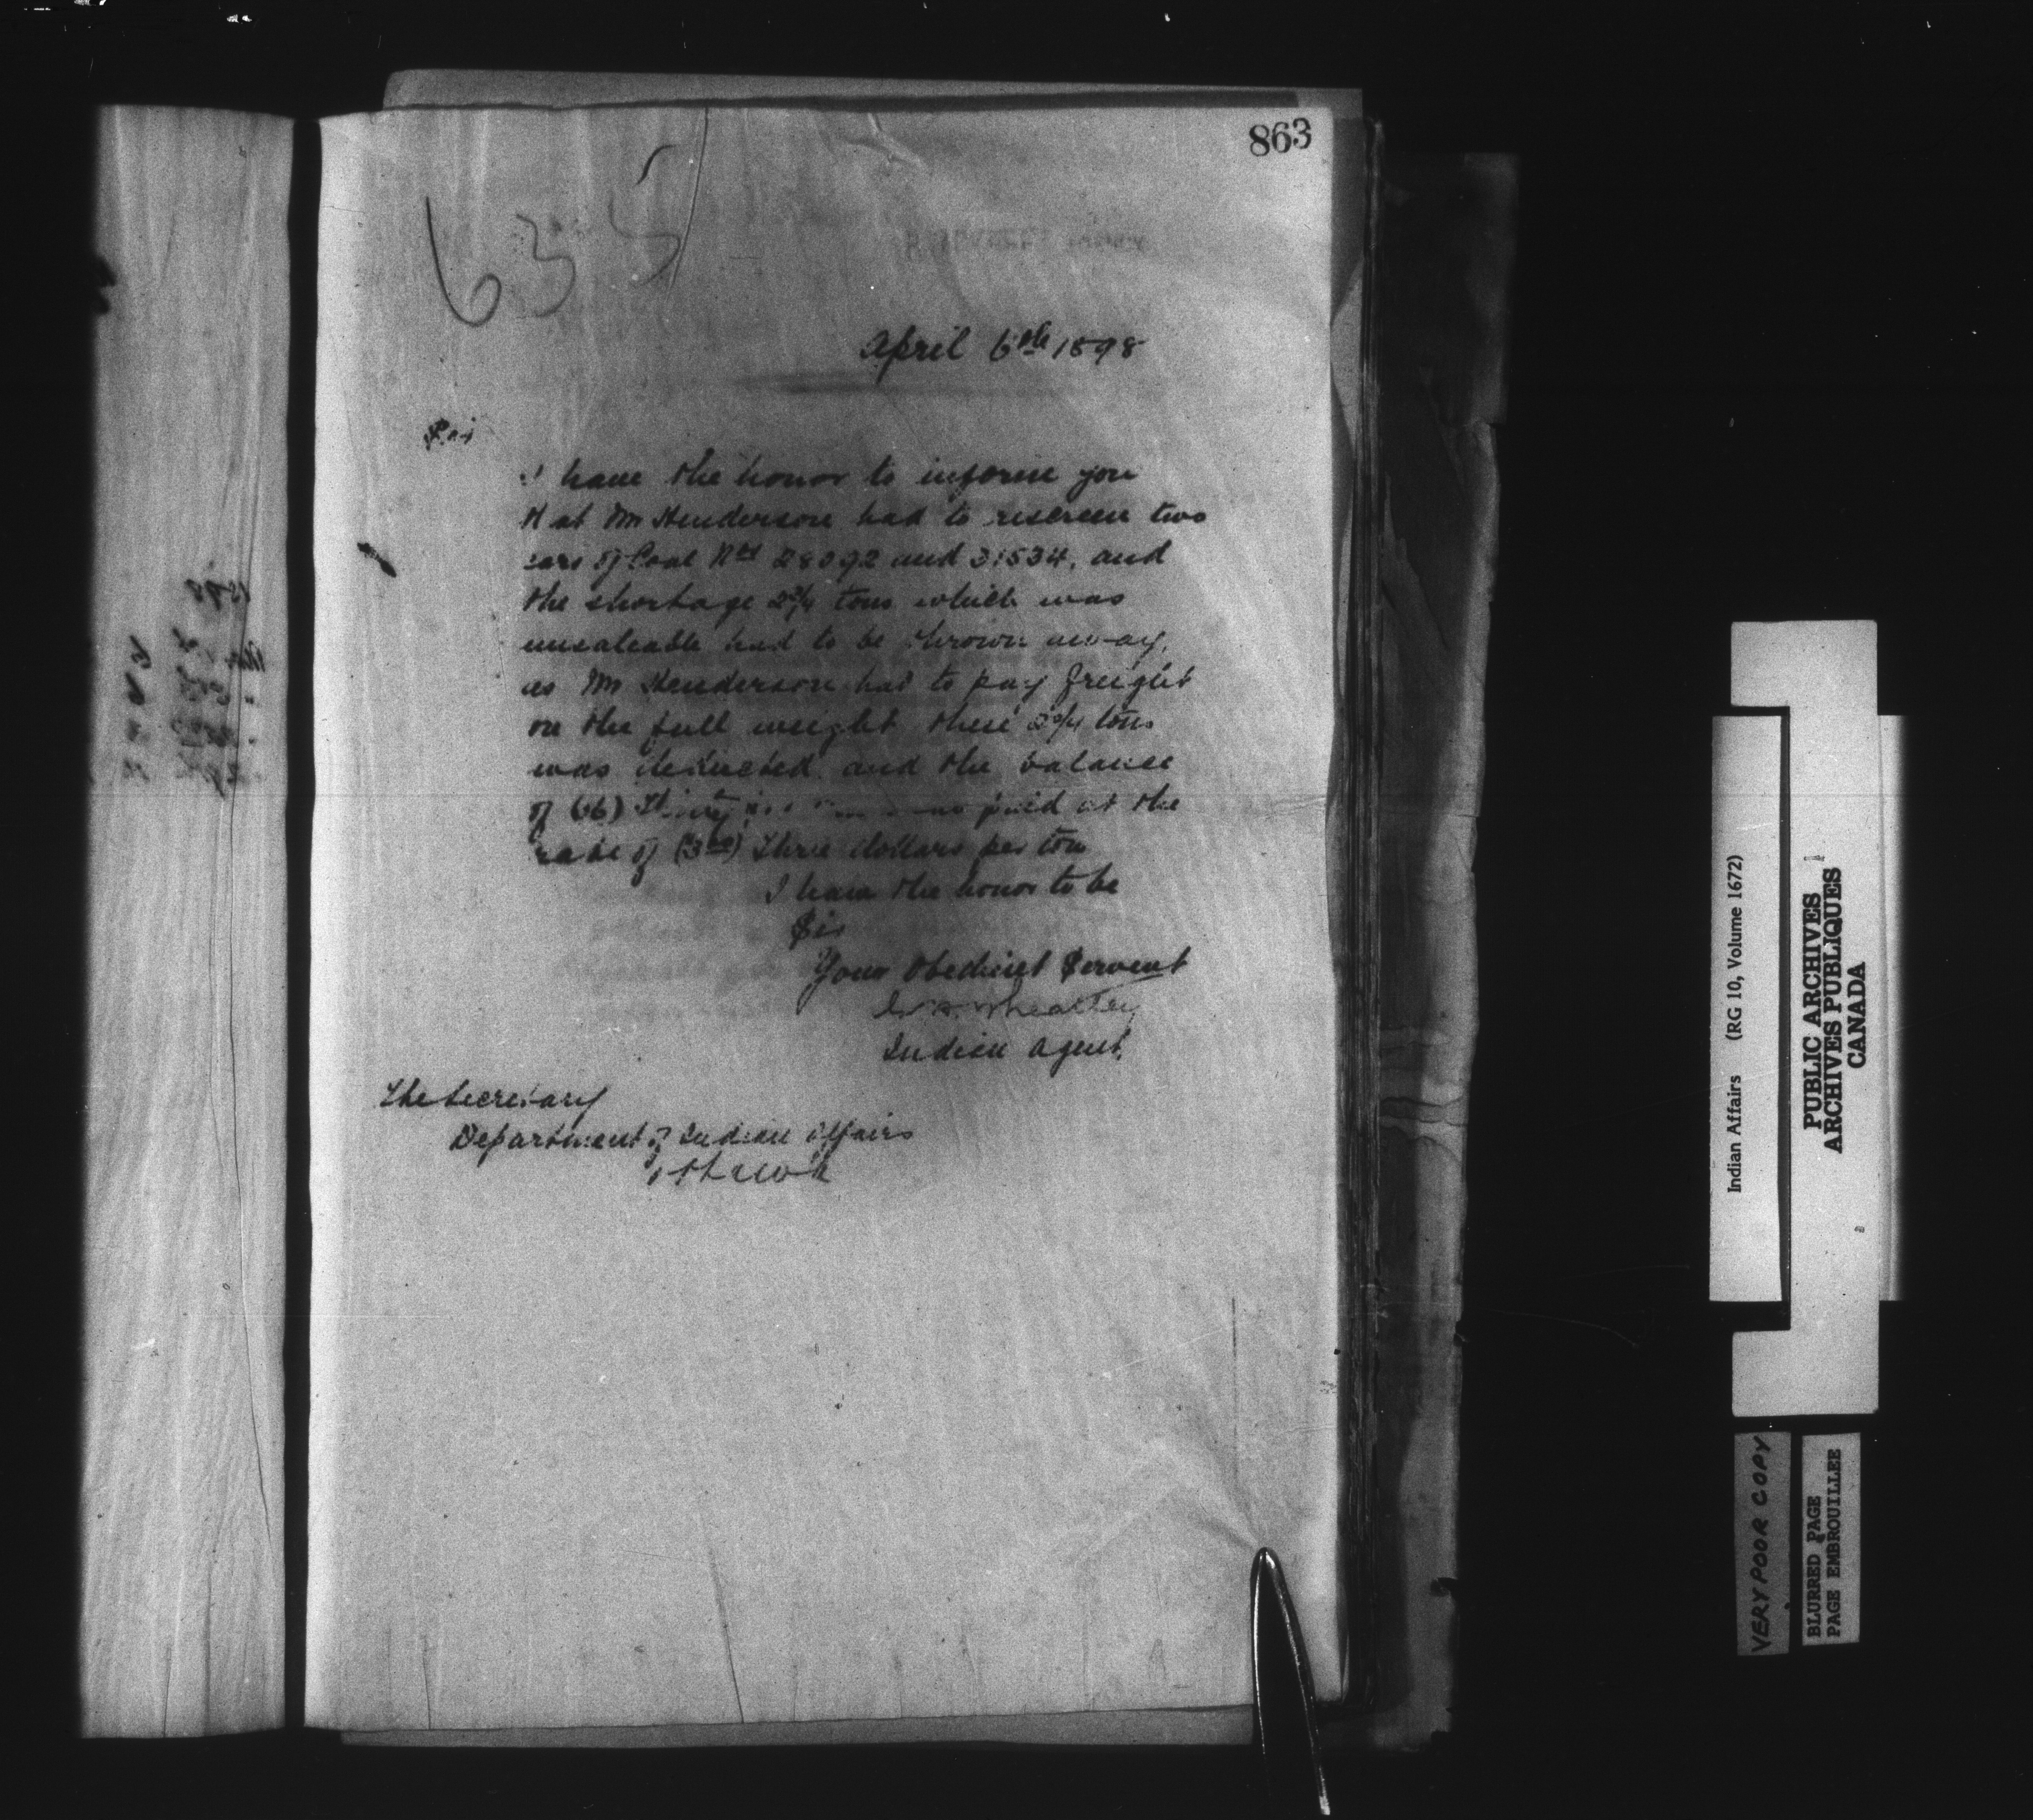 863
635
April 6th 1898
Sir
I have the honor to inform you
that Mr Henderson had to rescreen two
cars of Coal Nos 28092 and 31534, and
the shortage 2 3/4 tons which was
unsaleable had to be thrown away,
as Mr Henderson had to pay freight
on the full weight these 2 3/4 tons
was deducted and the balance
of paid at the
rate of (3 00) Three dollars per ton
I have the honor to be
Sir
Your Obedient Servent
G. H. Wheatley
Indian Agent.
The Secretary
Department of Indian Affairs
Ottawa
Indian Affairs (RG 10, Volume 1672)
PUBLIC ARCHIVES
ARCHIVES PUBLIQUES
CANADA
VERY POOR COPY
BLURRED PAGE
PAGE EMBROUILLEE